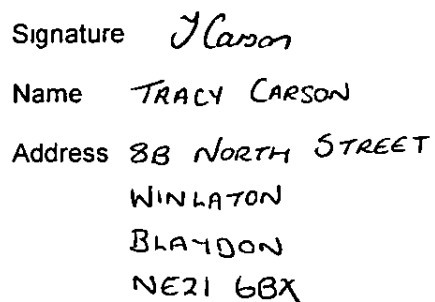 Signature T Carson
Name TRACY CARSON
Address 8B NORTH STREET
WINLATON
BLAYDON
NE21 6BX